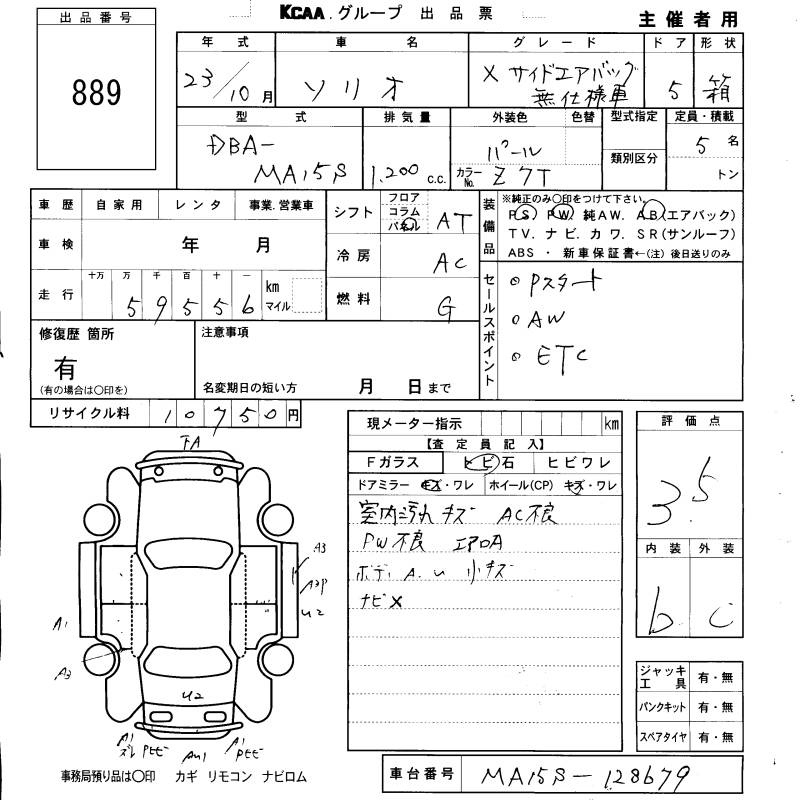 KCAA.グループ 出品票
主催者用
出品番号
889
年式 車名 グレード ドア 形状
23/10月 ソリオ X サイドエアバッグ 無仕様車 5 箱
型式 排気量 外装色 色替 型式指定 定員・積載
DBA-
MA15S 1,200 c.c. パール カラーNo. Z7T 類別区分 5名
トン
車歴 自家用 レンタ 事業.営業車
車検 年 月
走行 十万 万 千 百 十 一 km マイル
5 9 5 5 6
シフト フロア コラム パネル AT
冷房 AC
燃料 G
装備品
※純正のみ〇印をつけて下さい。
PS PW 純AW. AB(エアバック)
TV. ナビ. カワ. SR(サンルーフ)
ABS ・ 新車保証書←(注) 後日送りのみ
セールスポイント
Pスタート
AW
ETC
修復歴 箇所
有
(有の場合は〇印を)
注意事項
名変期日の短い方 月 日まで
リサイクル料 10750円
現メーター指示 km
【査定員記入】
Fガラス トビ石 ヒビワレ
ドアミラー キズ・ワレ ホイール(CP) キズ・ワレ
室内汚れ キズ AC不良
PW不良 エアロA
ボディ A.U 小キズ
ナビX
評価点
3.5
内装 外装
b c
ジャッキ工具 有・無
パンクキット 有・無
スペアタイヤ 有・無
FA
A3
A3P
U2
A1
A3
U2
A1
ズレ Pモビ
AU1
A1
Pモビ
事務局預り品は〇印 カギ リモコン ナビロム
車台番号 MA15S-128679